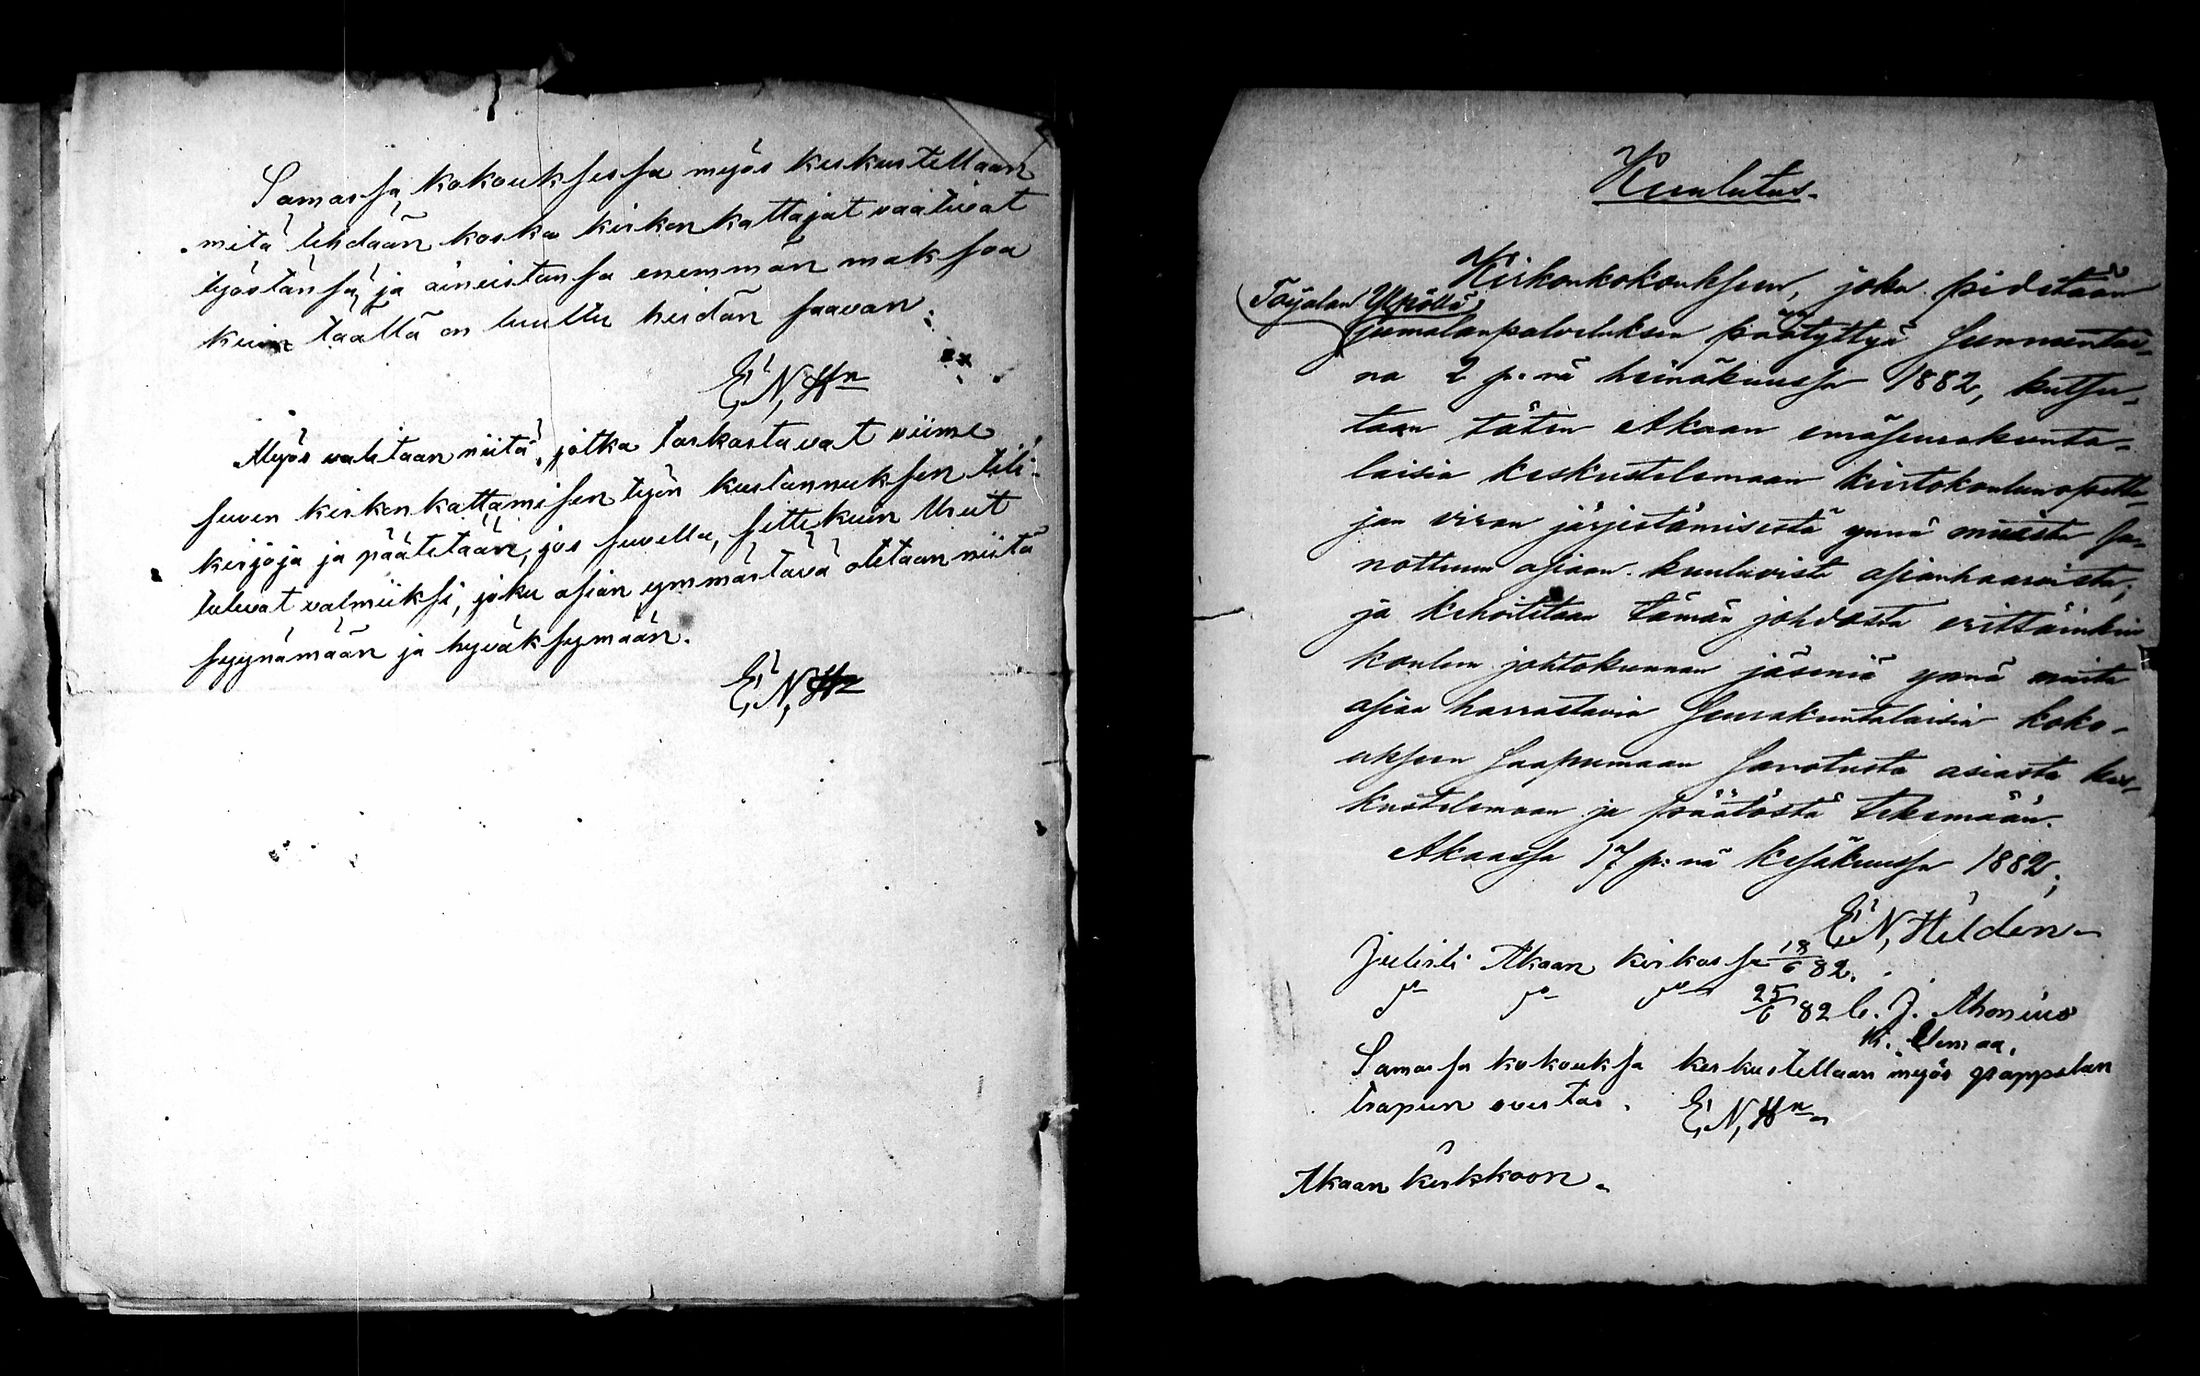 Samassa kokouksessa myös keskustellaan
mitä tehdään koska kirkon kattajat vaativat
työstänsä ja aineistansa enemmän maksoa
kuin täällä on luultu heidän saavan.
E, N, Hn
Myös valitaan niitä, jotka tarkastavat viime
suven kirkon kattamisen työn kustannuksen tili-
kirjoja ja päätetään, jos suvella, sittekuin Urut
tulevat valmiiksi, joku asian ymmärtävä otetaan niitä
syynämään ja hyväksymään.
E, N, Hn
Kuulutus.
Kirkonkokoukseen, joka pidetään
(Toijalan Ylpöllä)
jumalanpalveluksen päätyttyä sunnuntai-
na 2 p:nä heinäkuussa 1882, kutsu-
taan täten Akaan emäseurakunta-
laisia keskustelemaan kiertokoulunopetta-
jan viran järjestämisestä ynnä muista sa-
nottuun asiaan kuuluvista asianhaaroista;
ja kehoitetaan tämän johdosta erittäinkin
koulun johtokunnan jäseniä ynnä muita
asiaa harrastavia seurakuntalaisia koko-
ukseen saapumaan sanotusta asiasta kes-
kustelemaan ja päätöstä tekemään.
Akaassa 17 p:nä kesäkuussa 1882;
E, N, Heldén
Julisti Akaan kirkossa 18/6 82.
25/6 82 C. J. Ahonius
K.
Samassa kokouksa keskustellaan myös pappilan
trapun ovesta. E, N, Hn
Akaan kirkkoon.